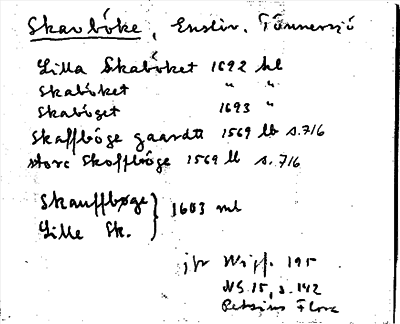 Skavböke, Enslöv. Tönnersjö
Lilla Skaböket 1692 hl
Skaböket " "
Skabøget 1693 "
Skaffbøge gaardtt 1569 lb s. 716
store Skoffbøge 1569 lb s. 716
Skauffbøge } 1603 ml
Lille Sk.
jfr Wijf. 195
NG. 15, s. 142
Petzius Flora